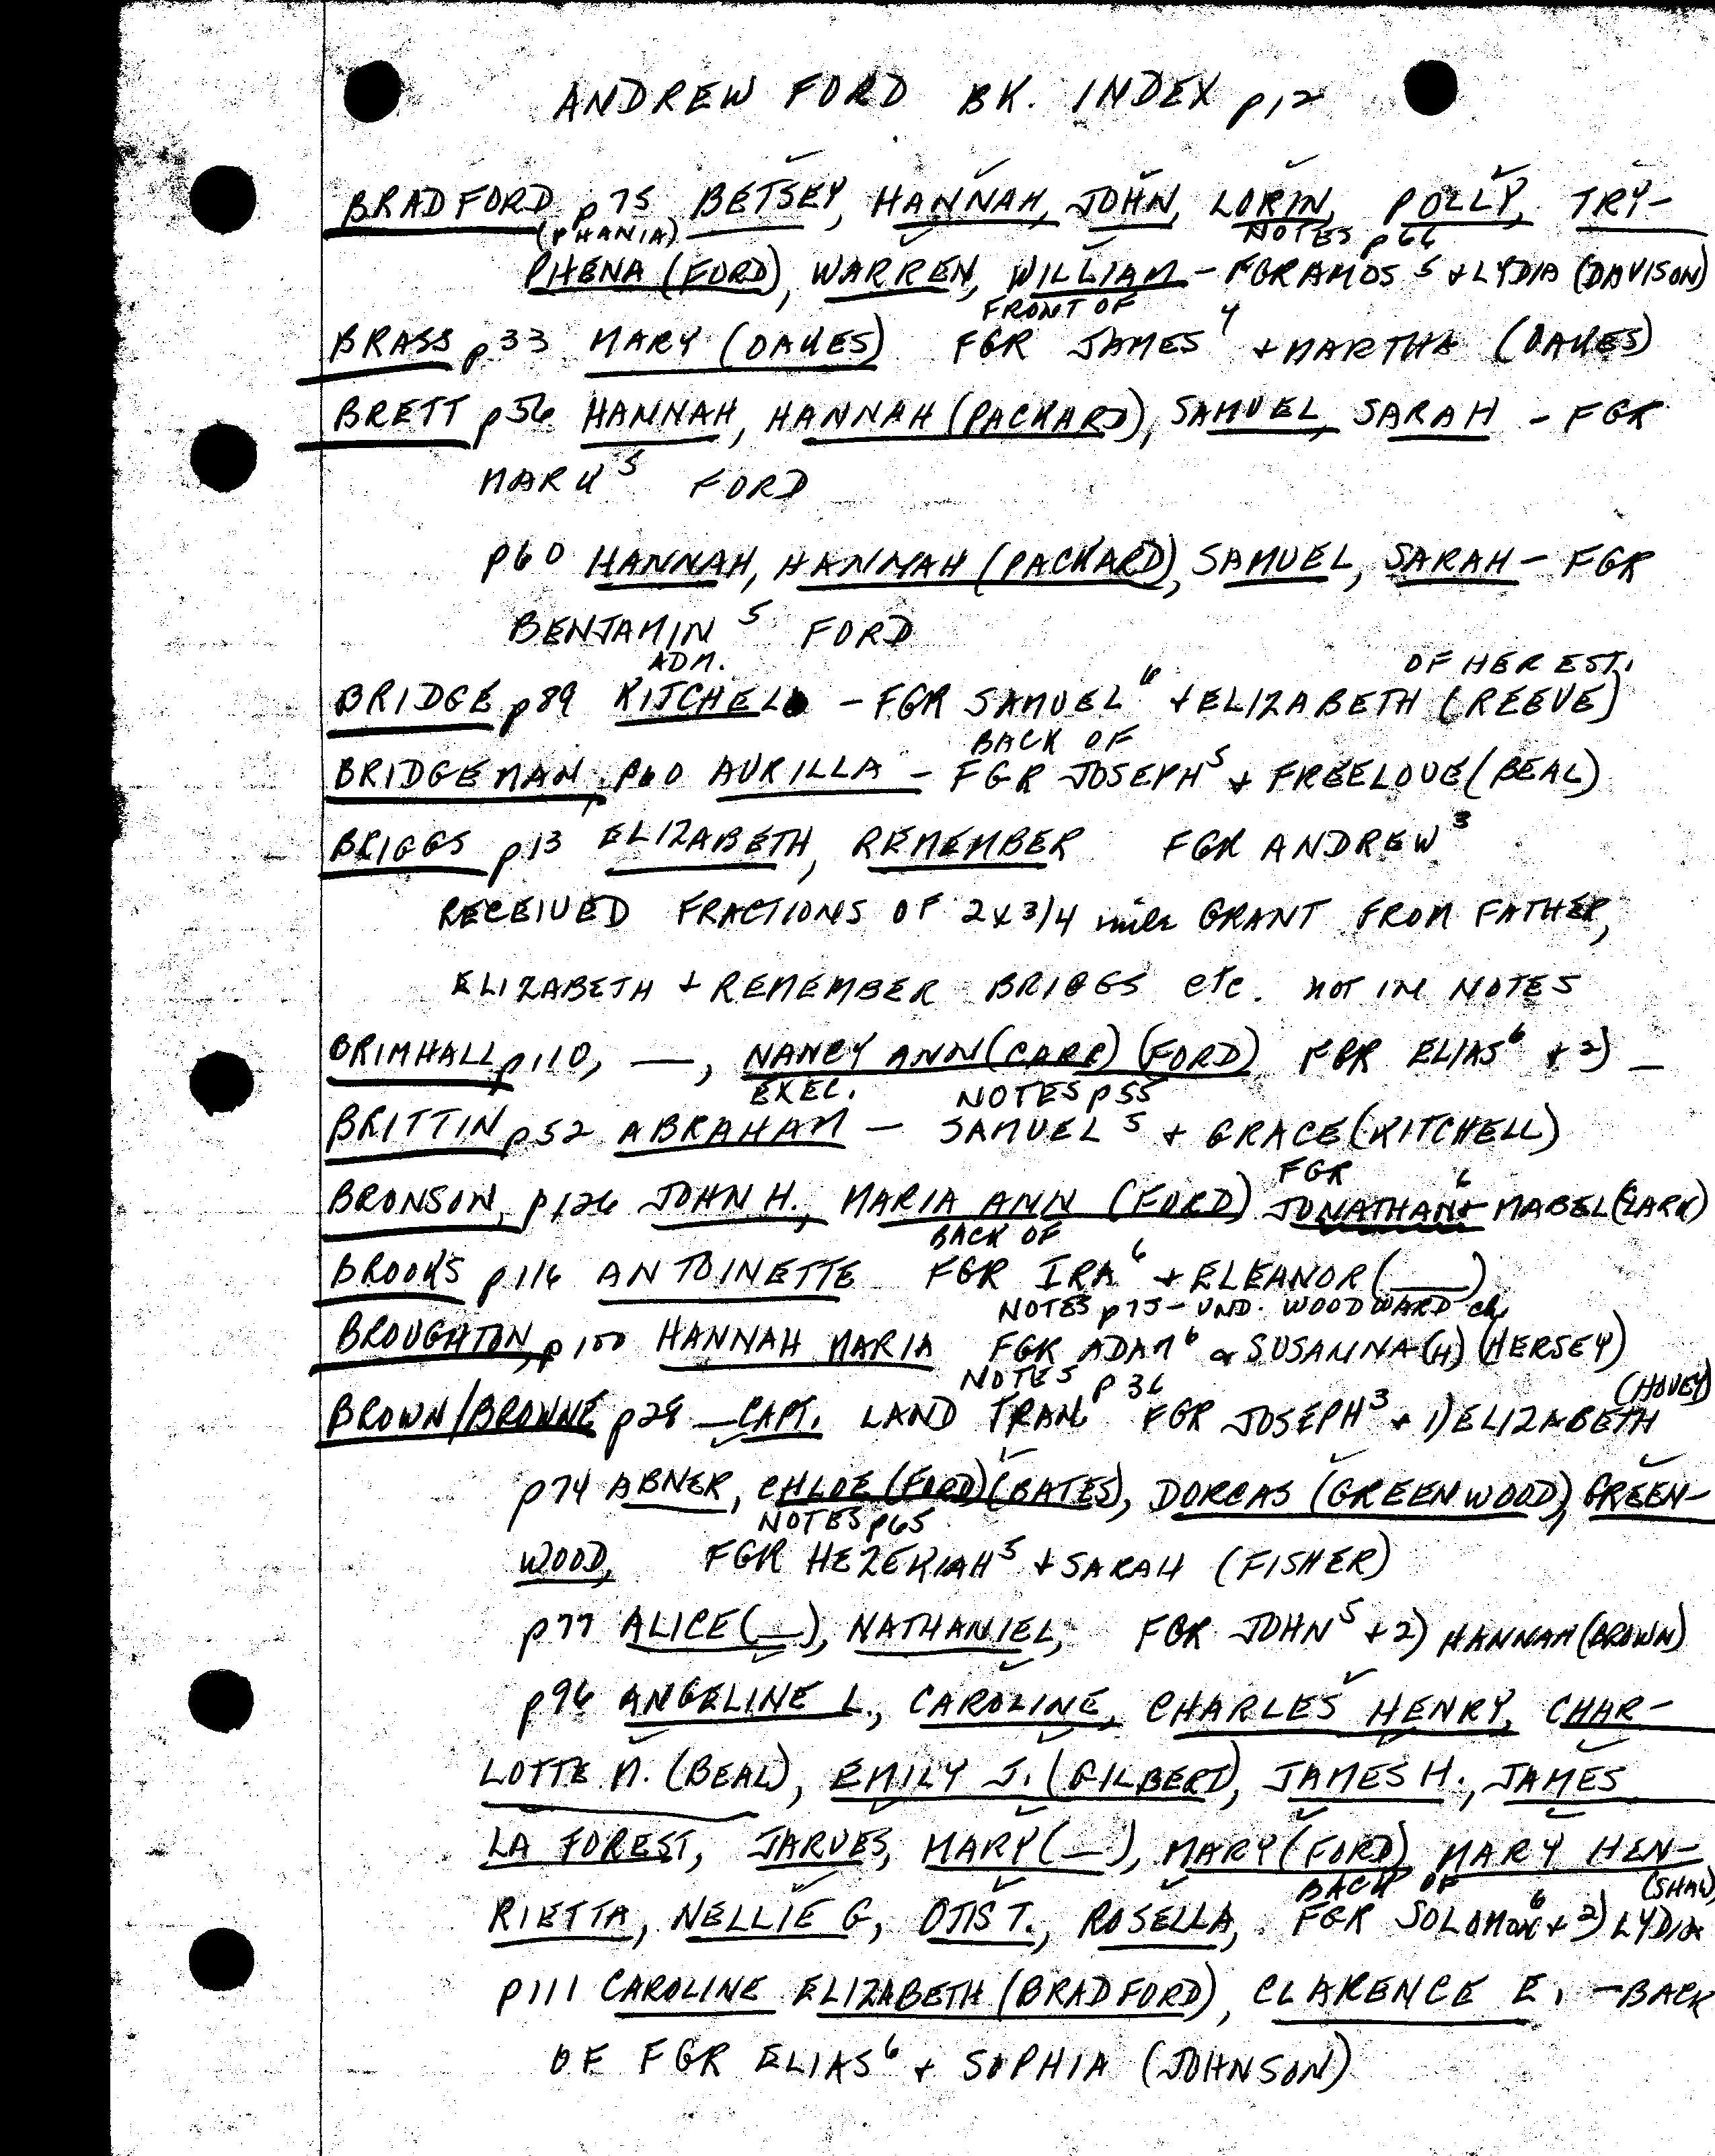 ANDREW FORD BK. INDEX p12
BRADFORD p75 BETSEY, HANNAH, JOHN, LORIN, POLLY, TRY-
(PHANIA) NOTES p66
PHENA (FORD), WARREN, WILLIAM - FGR AMOS 5 + LYDIA (DAVISON)
FRONT OF
BRASS p33 MARY (OAKES) FGR JAMES 4 + MARTHA (OAKES)
BRETT p56 HANNAH, HANNAH (PACKARD), SAMUEL, SARAH - FGR
MARK 5 FORD
p60 HANNAH, HANNAH (PACKARD), SAMUEL, SARAH - FGR
BENJAMIN 5 FORD
ADM. OF HER EST.
BRIDGE p89 KITCHELL - FGR SAMUEL 6 + ELIZABETH (REEVE)
BACK OF
BRIDGEMAN, p60 AURILLA - FGR JOSEPH 5 + FREELOVE (BEAL)
BRIGGS p13 ELIZABETH, REMEMBER FGR ANDREW 3
RECEIVED FRACTIONS OF 2 x 3/4 mile GRANT FROM FATHER,
ELIZABETH + REMEMBER BRIGGS etc. NOT IN NOTES
BRIMHALL p110, —, NANCY ANN (CARR) (FORD) FGR ELIAS 6 + 2) —
EXEC. NOTES p55
BRITTIN p52 ABRAHAM - SAMUEL 5 + GRACE (KITCHELL)
FGR
BRONSON, p126 JOHN H., MARIA ANN (FORD) JONATHAN 6 + MABEL (CLARK)
BACK OF
BROOKS p116 ANTOINETTE FGR IRA 6 + ELEANOR (___)
NOTES p75 - UND. WOODWARD ch
BROUGHTON, p100 HANNAH MARIA FGR ADAM 6 & SUSANNA (H) (HERSEY)
NOTES p36 (HOVEY)
BROWN/BROWNE p28 — CAPT. LAND TRAN. FGR JOSEPH 3 + 1) ELIZABETH
p74 ABNER, CHLOE (FORD) (BATES), DORCAS (GREENWOOD), GREEN-
NOTES p65
WOOD, FGR HEZEKIAH 5 + SARAH (FISHER)
p77 ALICE (—), NATHANIEL, FGR JOHN 5 + 2) HANNAH (BROWN)
p96 ANGELINE L., CAROLINE, CHARLES HENRY, CHAR-
LOTTE M. (BEAL), EMILY J. (GILBERT), JAMES H., JAMES
LA FOREST, JARVES, MARY (—), MARY (FORD), MARY HEN-
BACK OF (SHAW)
RIETTA, NELLIE G, OTIS T., ROSELLA, FGR SOLOMON 6 + 2) LYDIA
p111 CAROLINE ELIZABETH (BRADFORD), CLARENCE E. - BACK
OF FGR ELIAS 6 + SOPHIA (JOHNSON)